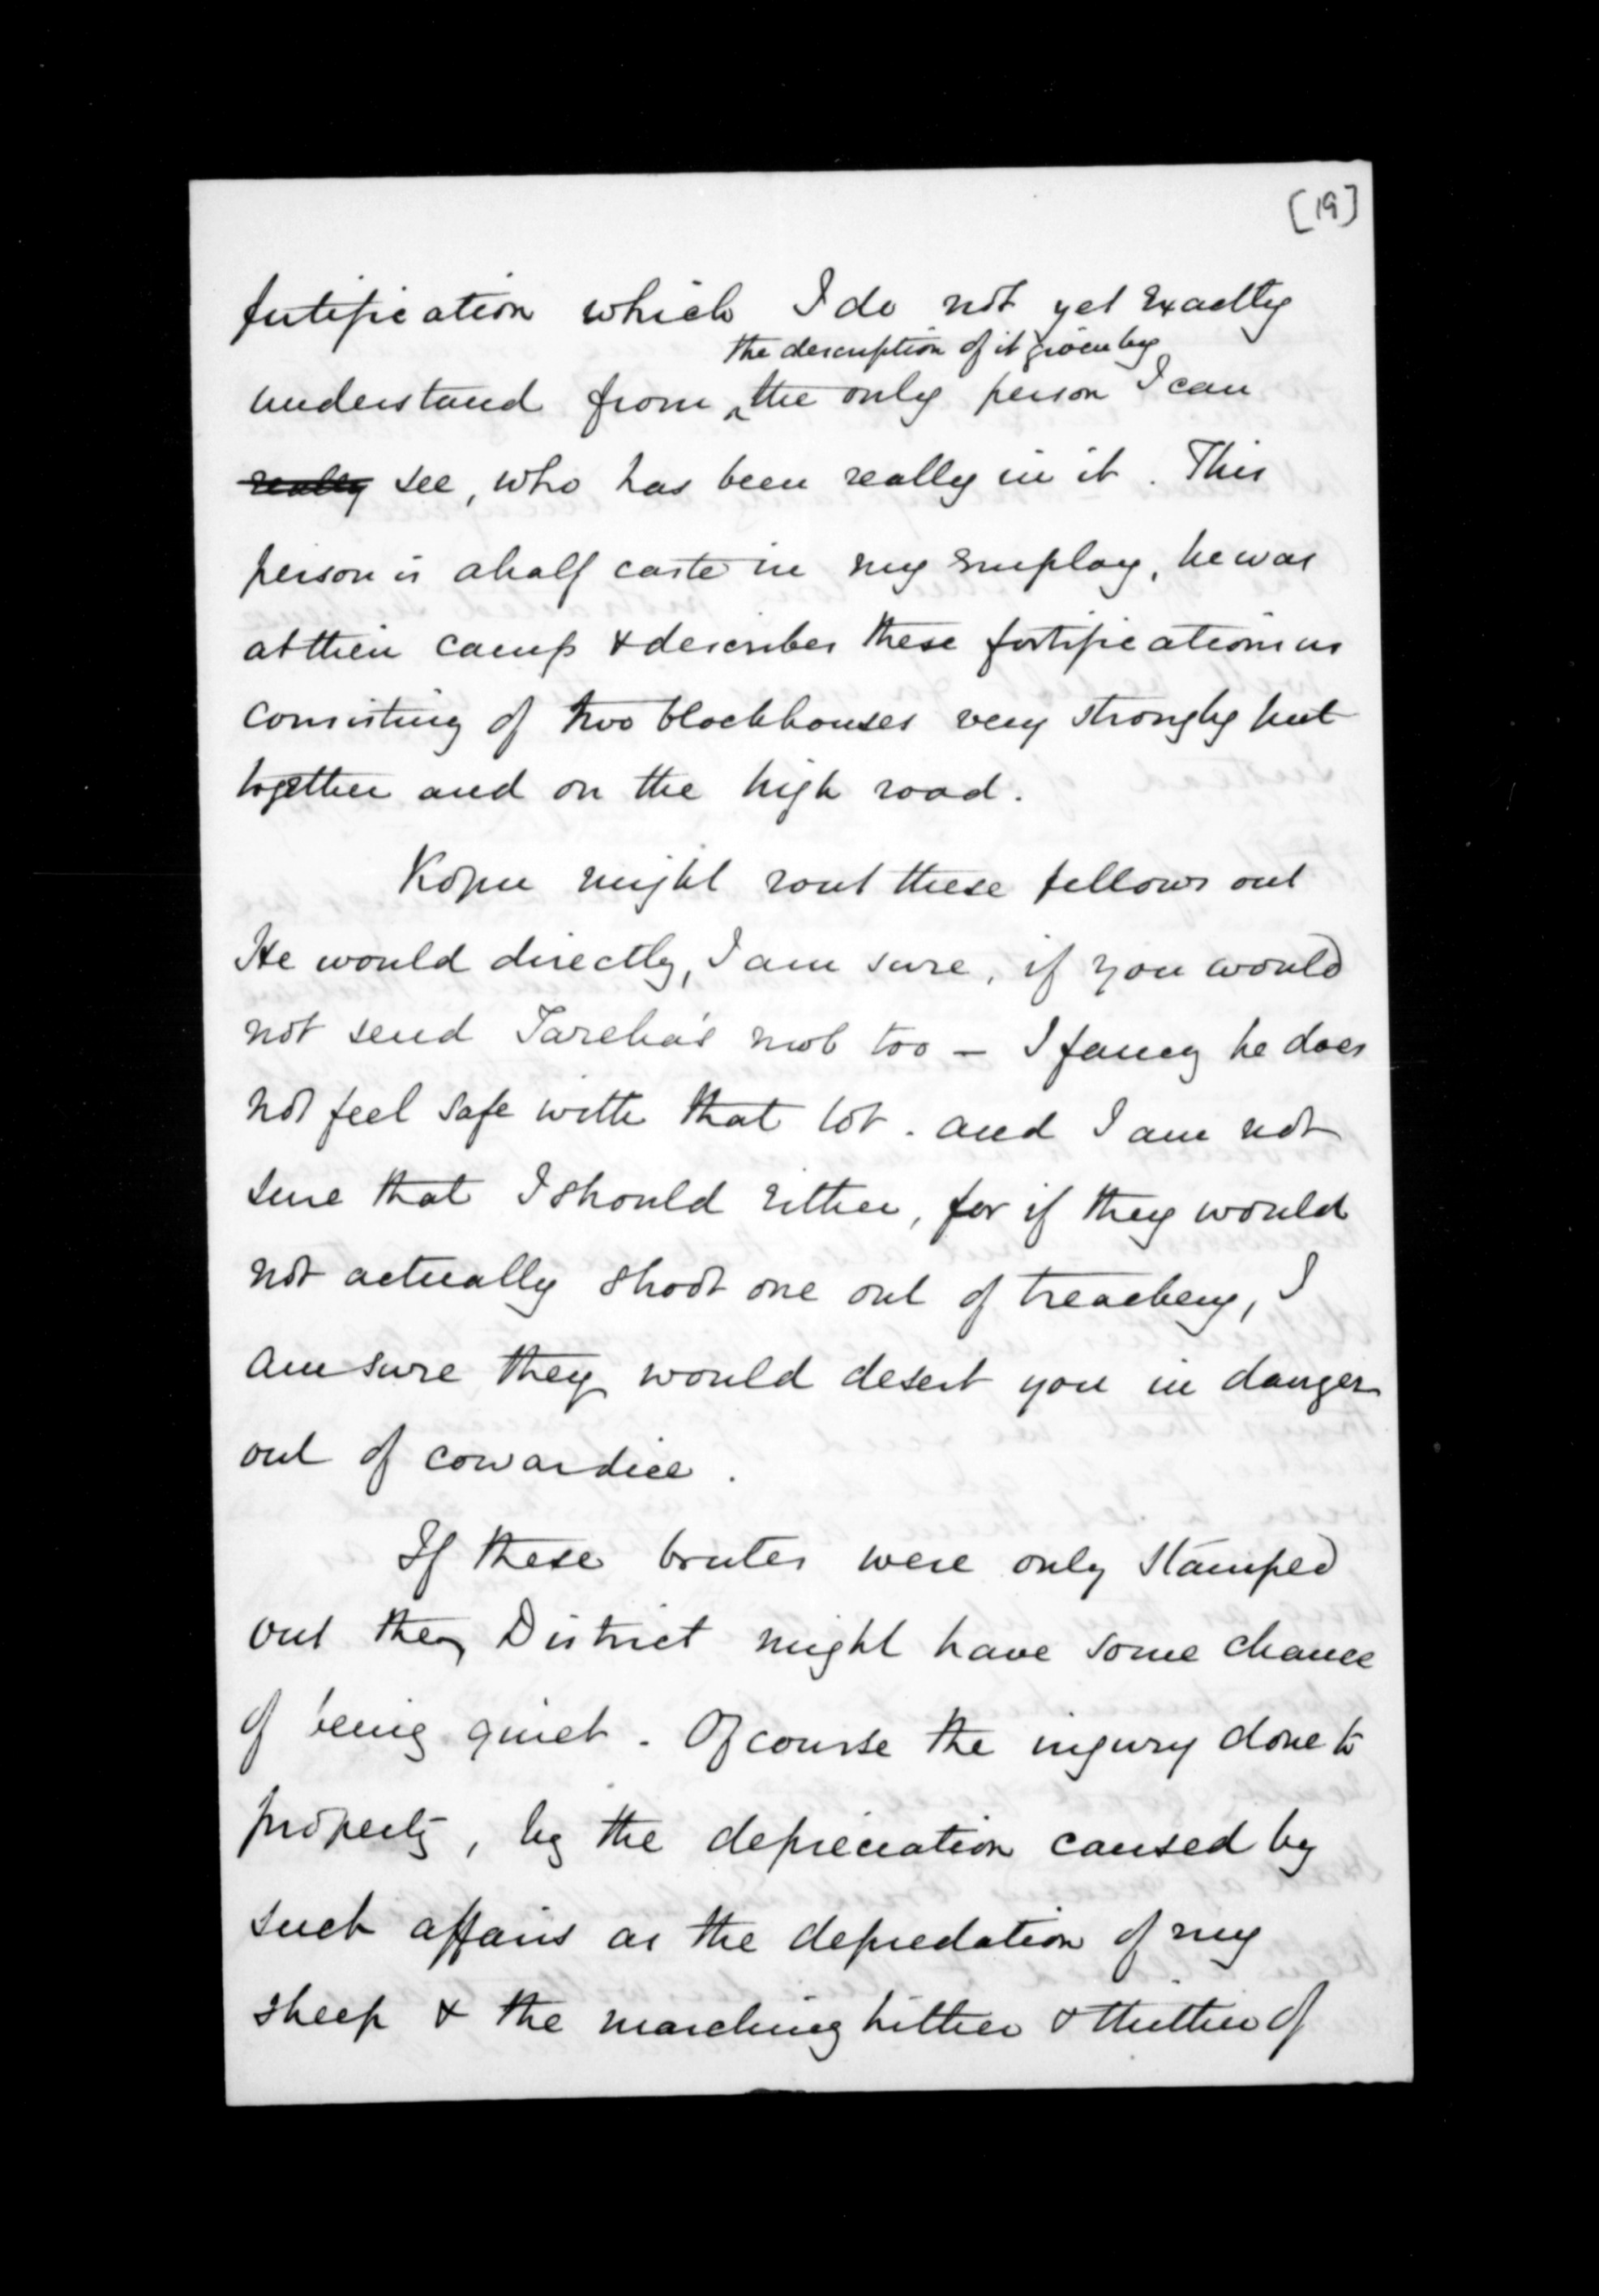 [19]
fortification which I do not yet exactly
the description of it given by
understand from ^ the only person I can
really see, who has been really in it. This
person is a half caste in my employ, he was
at their camp & describes these fortifications as
consisting of two blockhouses very strongly put
together and on the high road.
Kopu might rout these fellows out
He would directly, I am sure, if you would
not send Tareha's mob too — I fancy he does
not feel safe with that lot. and I am not
sure that I should either, for if they would
not actually shoot one out of treachery, I
am sure they would desert you in danger
out of cowardice.
If these brutes were only stamped
out the District might have some chance
of being quiet. Of course the injury done to
property, by the depreciation caused by
such affairs as the depredation of my
sheep & the marching hither & thither of